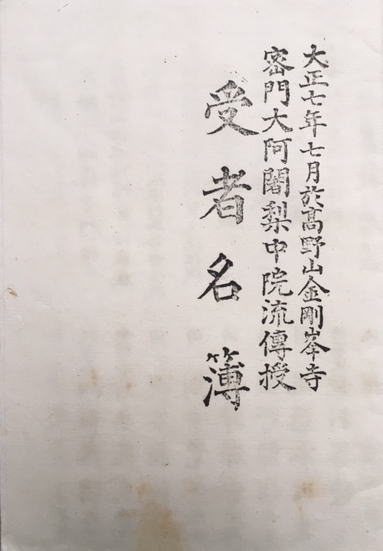 大正七年七月於髙野山金剛峯寺
密門大阿闍梨中院流傳授
受者名簿